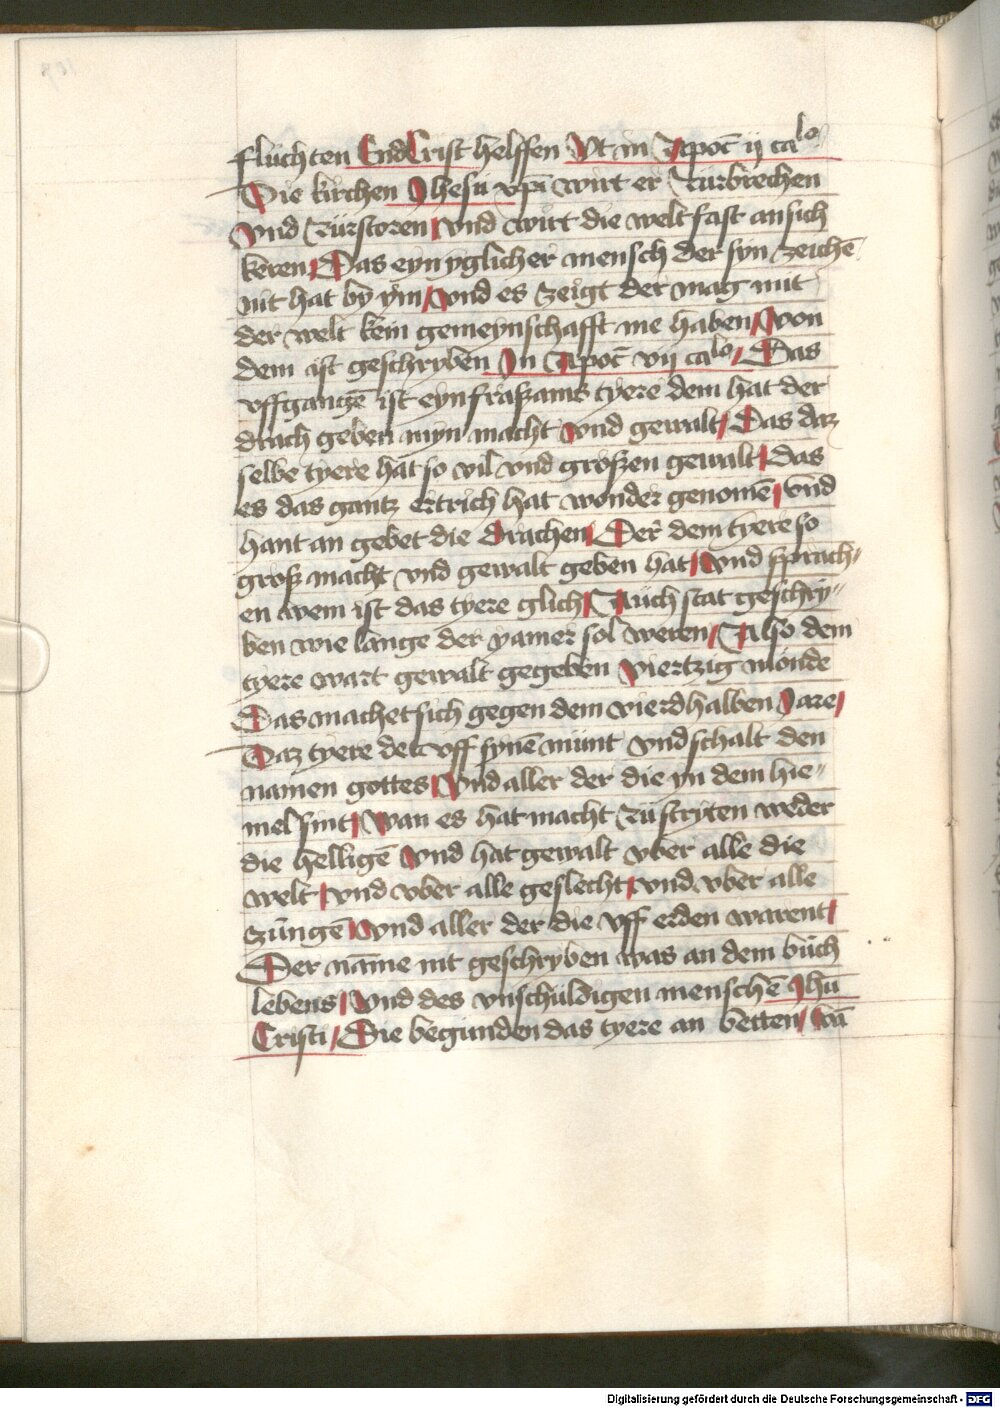 fluchten EndCrist helffen Vt in Apoc̄ ij caᶫᵒ
Die kirchen Jhesu xp̄i wirt er zurbrechen
Vnd zurstoren / vnd wirt die welt fast an sich
keren / Das eyn yglicher mensch der syn zeichē
nit hat by ym / Vnd es zeigt der mag mit
der welt kein gemeynschafft me haben / Von
dem ist geschryben Jn Apoc̄ vij caᶫᵒ / Das
vffgangē ist eyn fraßams tyere dem hat der
drach geben myn macht vnd gewalt / Das daz
selbe tyere hat so vil vnd großen gewalt / Das
es das gantz ertrich hat wonder genomē / Vnd
hant an gebet die Drachen / Der dem tyere so
groß macht vnd gewalt geben hat / Vnd sprach//
en wem ist das tyere glich / Auch stat geschry//
ben wie lange der yamer sol weren / Also dem
tyere wart gewalt gegeben viertzig mönde
Das machet sich gegen dem vierdhalben Jare /
Daz tyere det vff synē münt vnd schalt den
namen gottes / Vnd aller der die yn dem hie//
mel sint / Wan es hat macht zü stryten weder
die helligē Vnd hat gewalt vber alle die
welt / vnd vber alle geslecht / vnd vber alle
züngē / Vnd aller der die vff erden warent /
Der nāme nit geschryben was an dem büch
lebens / Vnd des vnschuldigen menschē Jhū
Cristi / Die begunden das tyere an betten / wā
Digitalisierung gefördert durch die Deutsche Forschungsgemeinschaft - DFG